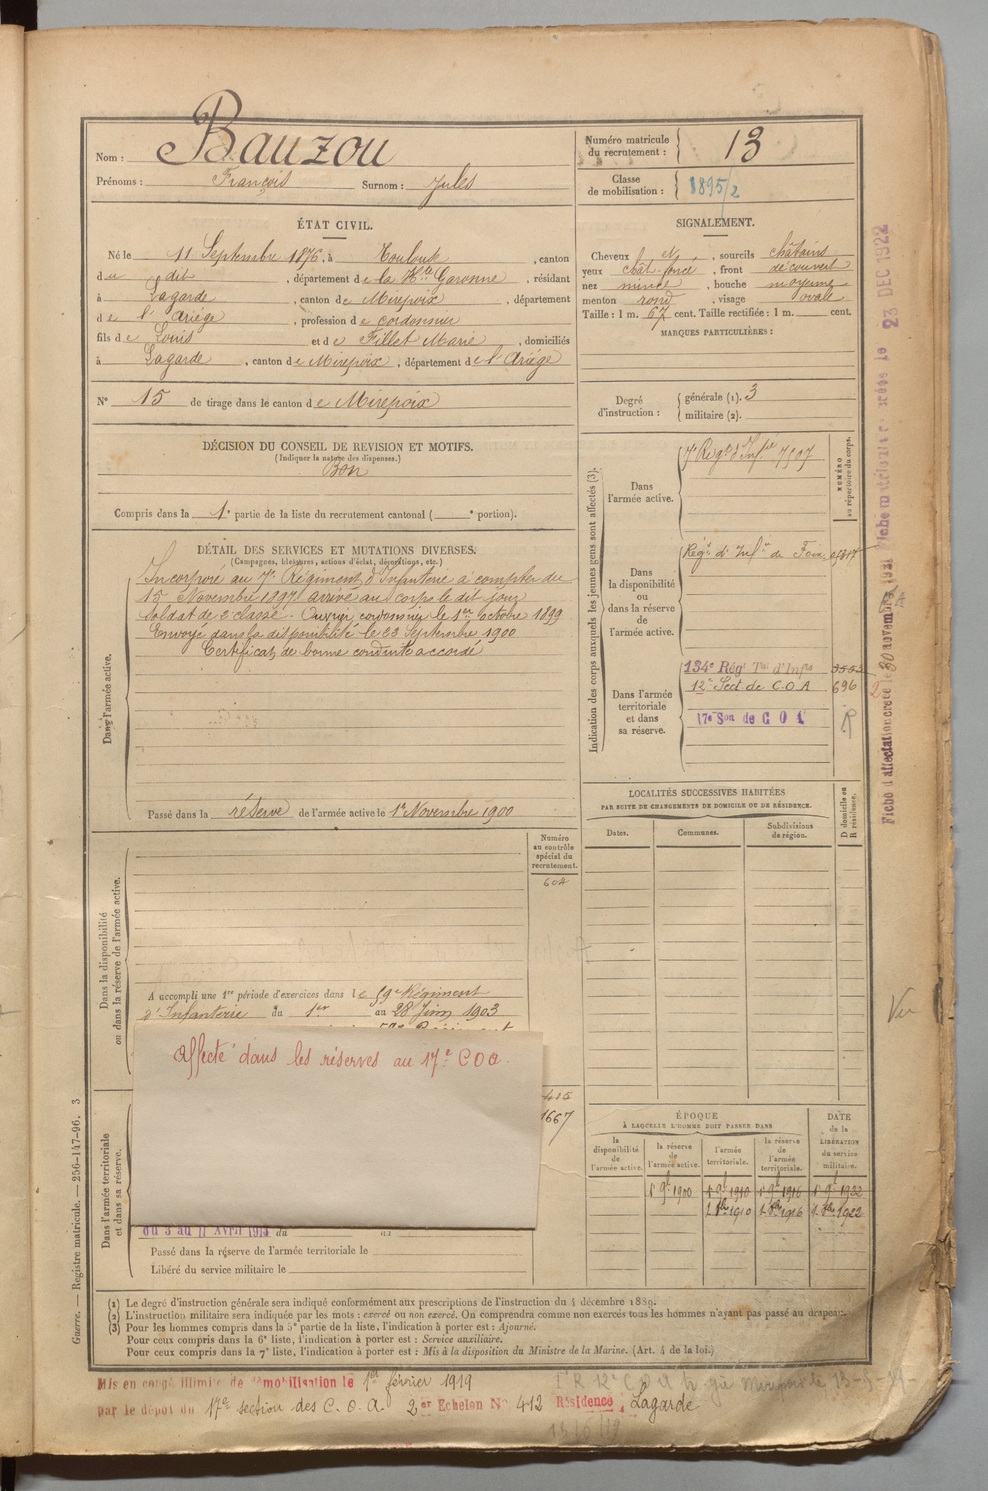 Nom : Bauzou
Prénoms : François Surnom : Jules
Numéro matricule du recrutement : 13
Classe de mobilisation : 1895/2
ÉTAT CIVIL.
Né le 11 Septembre 1876, à Toulouse, canton
du dit, département de la Hte Garonne, résidant
à Lagarde, canton de Mirepoix, département
de l'Ariège, profession de cordonnier
fils de Louis et de Fillet Marie, domiciliés
à Lagarde, canton de Mirepoix, département de l'Ariège
N° 15 de tirage dans le canton de Mirepoix
SIGNALEMENT.
Cheveux et, sourcils châtains
yeux chât. foncé, front découvert
nez mince, bouche moyenne
menton rond, visage ovale
Taille : 1 m. 67 cent. Taille rectifiée : 1 m. cent.
MARQUES PARTICULIÈRES :
Degré d'instruction : générale (1). 3
militaire (2).
DÉCISION DU CONSEIL DE REVISION ET MOTIFS.
(Indiquer la nature des dispenses.)
Bon
Compris dans la 1e partie de la liste du recrutement cantonal ( e portion).
DÉTAIL DES SERVICES ET MUTATIONS DIVERSES.
(Campagnes, blessures, actions d'éclat, décorations, etc.)
Dans l'armée active.
Incorporé au 7e Régiment d'Infanterie à compter du
15 Novembre 1897 arrivé au corps le dit jour
soldat de 2e classe. Ouvrier cordonnier le 1er octobre 1899
Envoyé dans la disponibilité le 23 Septembre 1900
Certificat de bonne conduite accordé
Passé dans la réserve de l'armée active le 1er Novembre 1900
Indication des corps auxquels les jeunes gens sont affectés (3).
NUMÉRO au répertoire du corps.
Dans l'armée active.
7e Régt d'Infie 7597
Dans la disponibilité ou dans la réserve de l'armée active.
Régt d'Infie de Foix
Dans l'armée territoriale et dans sa réserve.
134e Régt Tal d'Infie
12e Sect de C.O.A 696
17e Son de C O A
LOCALITÉS SUCCESSIVES HABITÉES
PAR SUITE DE CHANGEMENTS DE DOMICILE OU DE RÉSIDENCE.
Dates. Communes. Subdivisions de région.
D domicile ou R résidence.
Dans la disponibilité ou dans la réserve de l'armée active.
Numéro au contrôle spécial du recrutement.
604
A accompli une 1re période d'exercices dans le 59e Régiment
d'Infanterie du 1er au 28 Juin 1903
Affecté dans les réserves au 17e COA.
1667
Dans l'armée territoriale et dans sa réserve.
du 3 au 11 Avril 1913 du
Passé dans la réserve de l'armée territoriale le
Libéré du service militaire le
ÉPOQUE
À LAQUELLE L'HOMME DOIT PASSER DANS
DATE de la LIBÉRATION du service militaire.
la disponibilité de l'armée active.
la réserve de l'armée active.
l'armée territoriale.
la réserve de l'armée territoriale.
1er 9bre 1900 1er 9bre 1910 1er 9bre 1916 1er 9bre 1922
1er 8bre 1910 1er 8bre 1916 1er 8bre 1922
(1) Le degré d'instruction générale sera indiqué conformément aux prescriptions de l'instruction du 4 décembre 1889.
(2) L'instruction militaire sera indiquée par les mots : exercé ou non exercé. On comprendra comme non exercés tous les hommes n'ayant pas passé au drapeau.
(3) Pour les hommes compris dans la 5e partie de la liste, l'indication à porter est : Ajourné.
Pour ceux compris dans la 6e liste, l'indication à porter est : Service auxiliaire.
Pour ceux compris dans la 7e liste, l'indication à porter est : Mis à la disposition du Ministre de la Marine. (Art. 4 de la loi.)
Mis en congé illimité de démobilisation le 1er février 1919
par le dépôt du 17e section des C.O.A 2er Echelon N° 412 Résidence, Lagarde
Guerre. — Registre matricule. — 256-147-96. 3
23 DEC 1922
Vu